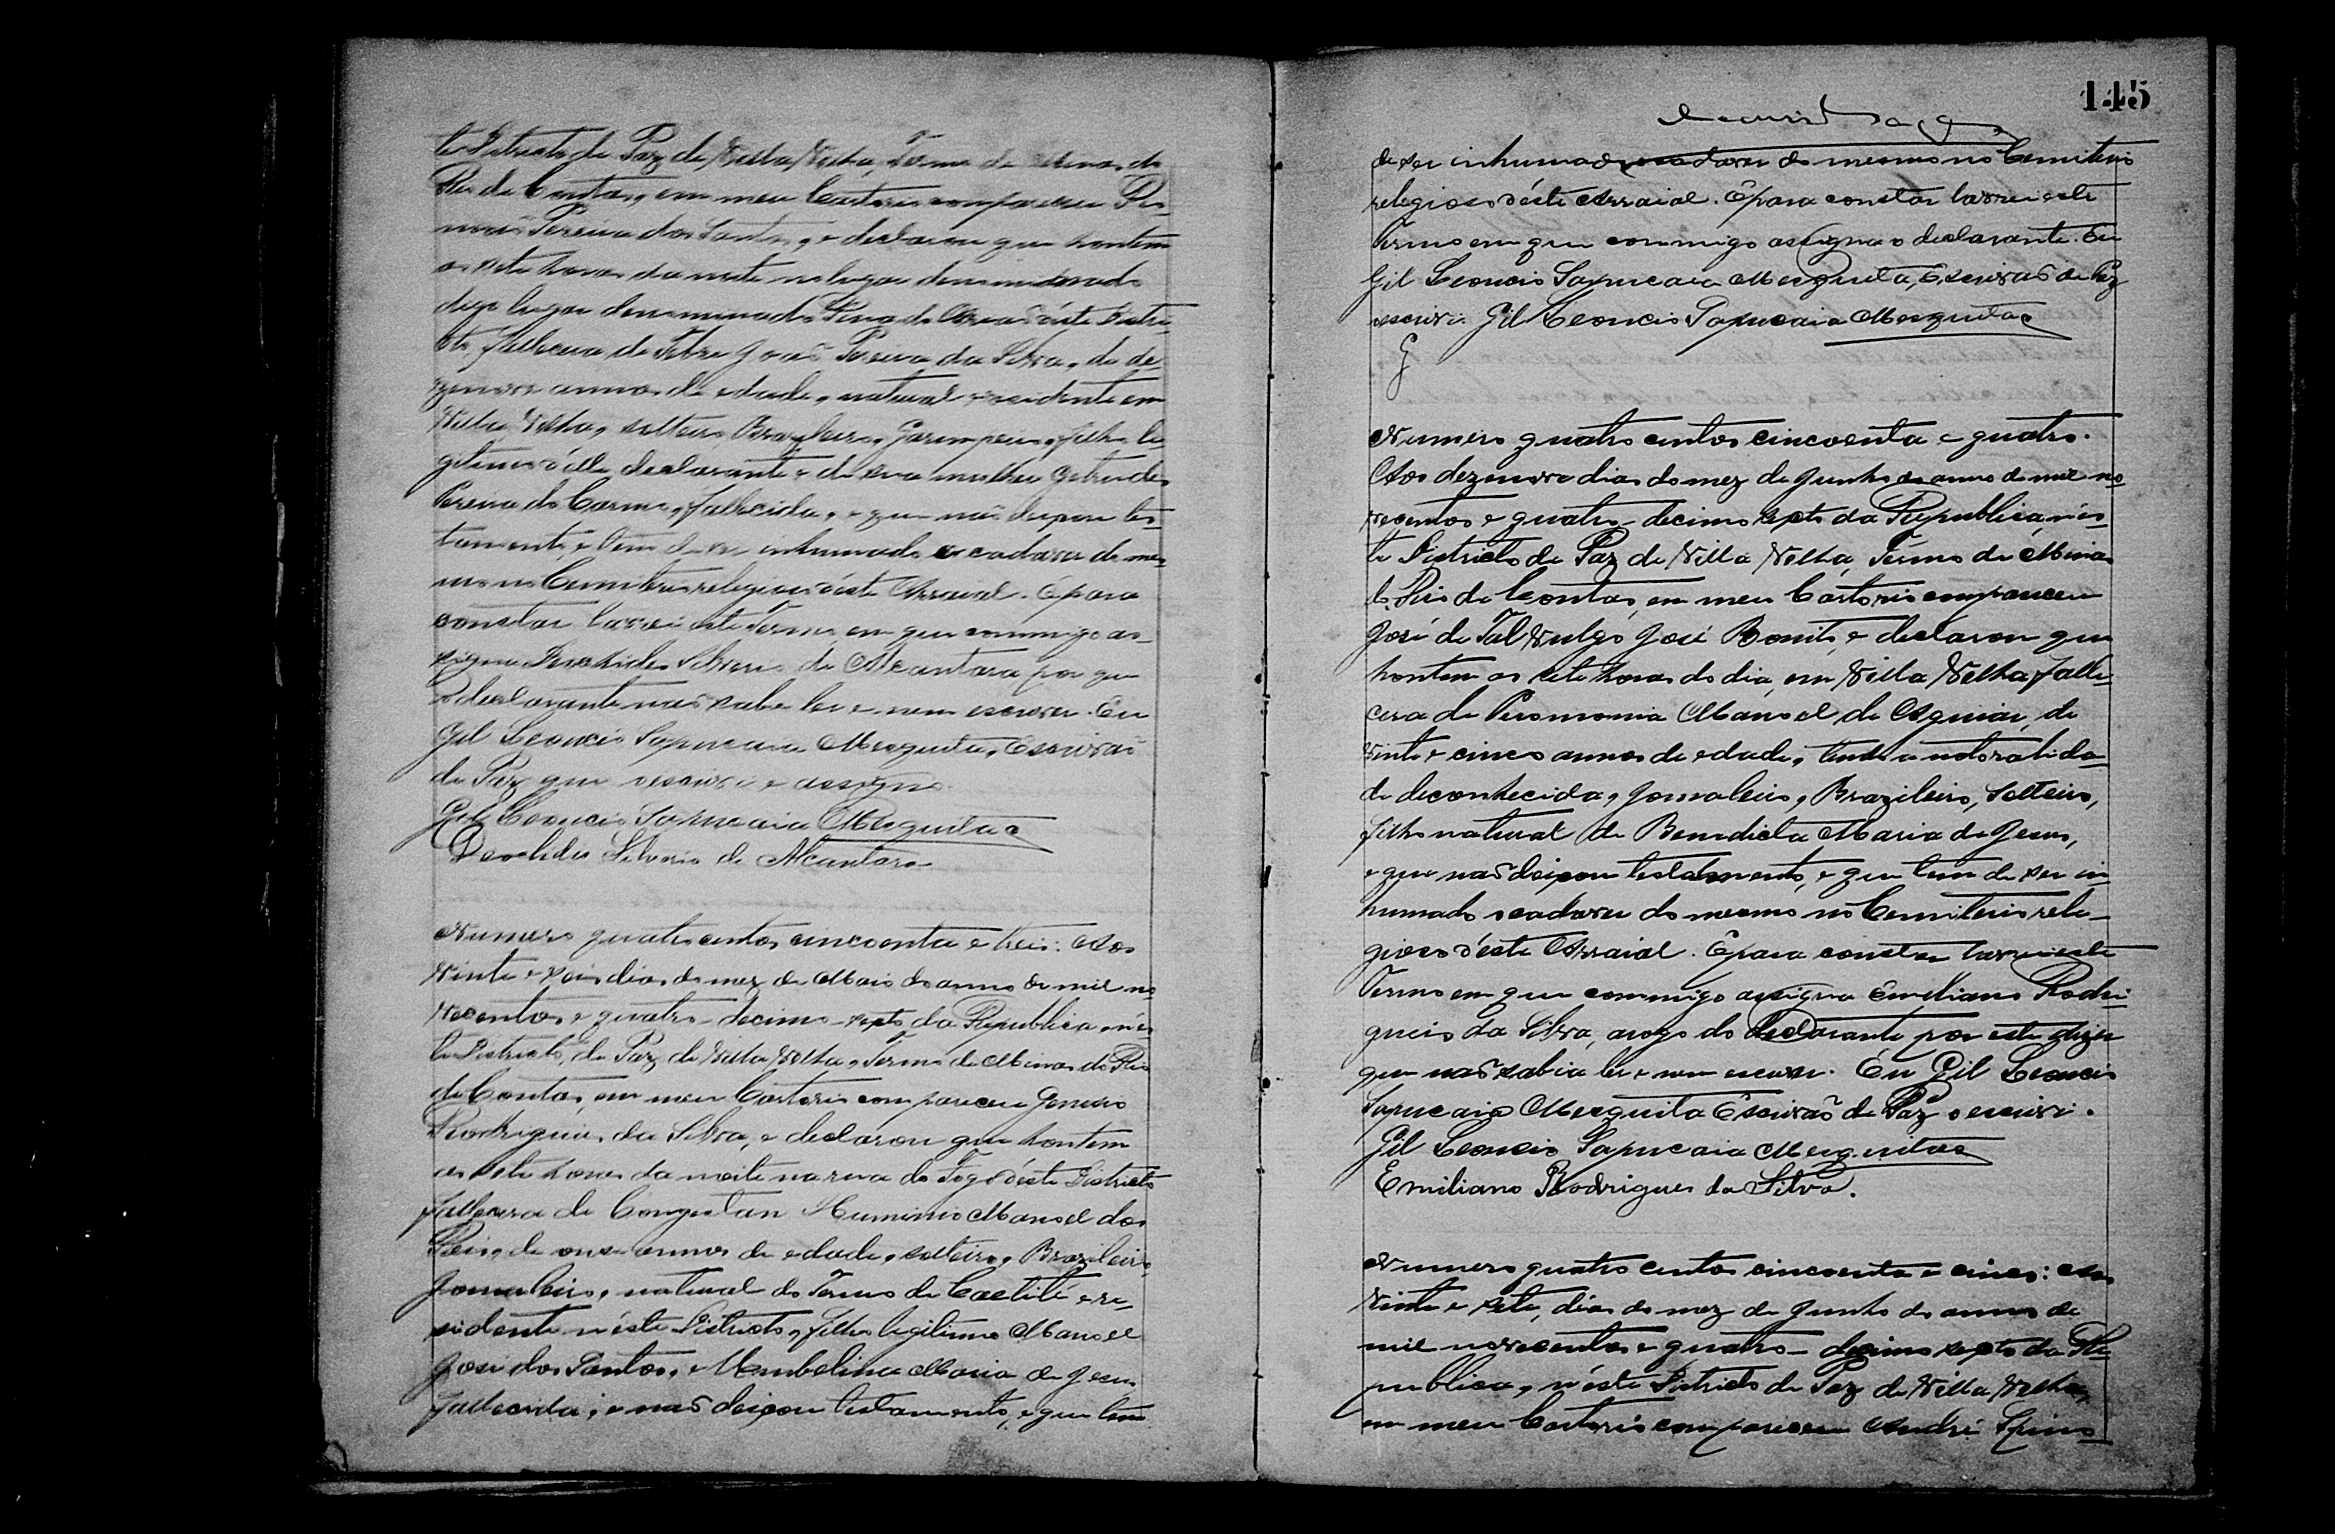 te Districto de Paz de Villa Velha, Termo de Minas do
Rio de Contas, em meu Cartorio compareceu
Pereira dos Santos, e declarou que hontem
as sete horas da noite no lugar denominado
digo lugar denominado d'éste Distri
cto, fallecera de Febre João Pereira da Silva, de de
zenove annos de edade, natural e residente em
Villa Velha, solteiro Brazileiro, Garimpeiro, filho le
gitimo d'elle declarante e de sua mulher Getrudes
Pereira do Carmo, fallecida, e que não deixou tes
tamento, e tem de ser inhumado o cadaver do mes
mo no Cemiterio religioso d'éste Arraial. E para
constar lavrei este Termo em que commigo as
signa Deoclides Silverio de Alcantara por que
o declarante não sabe ler e nem escrever. Eu
Gil Leoncio Sapucaia Mesquita, Escrivão
de Paz que o escrivi e assigno.
Gil Leoncio Sapucaia Mesquita
Deoclides Silverio de Alcantara
Numero quatro centos cincoenta e treis: Aos
vinte e seis dias do mez de Maio do anno de mil no
vecentos e quatro - decimo - sexto da Republica n'és
te Districto de Paz de Villa Velha, Termo de Minas do Rio
de Contas, em meu Cartorio compareceu Genesio
Rodrigues da Silva, e declarou que hontem
as sete horas da noite na rua do Fogo d'éste Districto
fallecera de Congestan Herminio Manoel dos
Reis, de onze annos de edade, solteiro, Brazileiro,
Jornaleiro, natural do Termo de Caetité e re
sidente n'éste Districto, filho legitimo Manoel
José dos Santos, e Umbelina Maria de Jesus
fallecida; e não deixou testamento, e que tem
145
de ser inhumado o cadaver do mesmo no Cemiterio
religioso d'éste Arraial. E para constar lavrei este
Termo em que commigo assigna o declarante. Eu
Gil Leoncio Sapucaia Mesquita, Escrivão de Paz
o escrivi. Gil Leoncio Sapucaia Mesquita
G
Numero quatro centos cincoenta e quatro.
Aos dezenove dias do mez de Junho do anno de mil no
vecentos e quatro - decimo sexto da Republica, n'es
te Districto de Paz de Villa Velha, Termo de Minas
do Rio de Contas, em meu Cartorio compareceu
José de Tal vulgo José Bonito, e declarou que
hontem as sete horas do dia, em Villa Velha falle
cera de Pneomonia Manoel de Aguiar, de
vinte e cinco annos de edade, tendo a notoralida
de deconhecida, Jornaleiro, Brazileiro, Solteiro,
filho natural de Benedicta Maria de Jesus,
e que não deixou testamento, e que tem de ser in
humado o cadaver do mesmo no Cemiterio reli
gioso d'éste Arraial. E para constar lavrei este
Termo em que commigo assigna Emiliano Rodri
gueis da Silva, arogo do declarante por este dizer
que não sabia ler e nem escrever. Eu Gil Leoncio
Sapucaia Mesquita Escrivão de Paz o escrivi.
Gil Leoncio Sapucaia Mesquita
Emiliano Rodrigues da Silva.
Numero quatro centos cincoenta e cinco: Aos
vinte e sete dias do mez de Junho do anno de
mil novecentos e quatro - decimo sexto da Re
publica, n'éste Districto de Paz de Villa Velha,
em meu Cartorio compareceu André